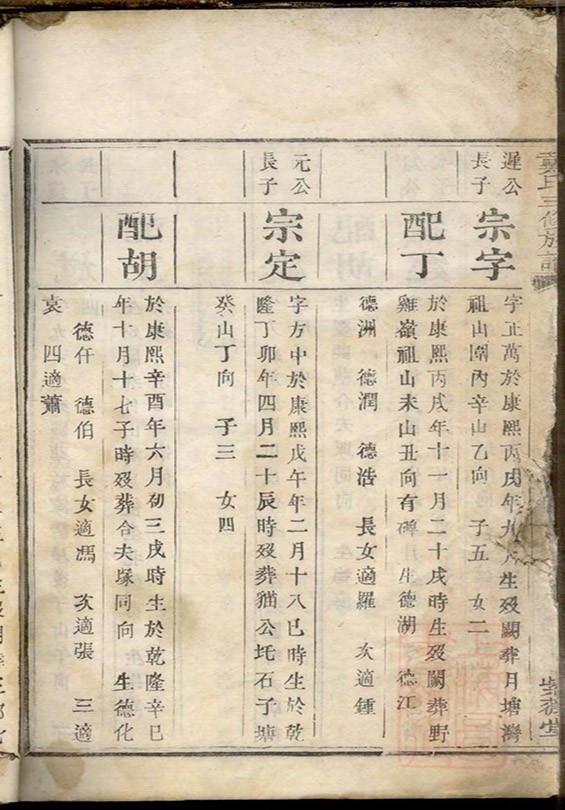 氏三修族譜
遲公
長子
宗字
字正萬於康熙丙戌年九月生歿闕葬月塘灣
祖山圍內辛山乙向 子五 女二
配丁
於康熙丙戌年十一月二十戌時生歿闕葬野
雞嶺祖山未山丑向有碑 生德湖 德江
德洲 德潤 德浩 長女適羅 次適鍾
元公
長子
宗定
字方中於康熙戊午年二月十八巳時生於乾
隆丁卯年四月二十辰時歿葬猫公圫石子塘
癸山丁向 子三 女四
配胡
於康熙辛酉年六月初三戌時生於乾隆辛巳
年十月十七子時歿葬合夫塚同向 生德化
德仟 德伯 長女適馮 次適張 三適
袁 四適蕭
堂